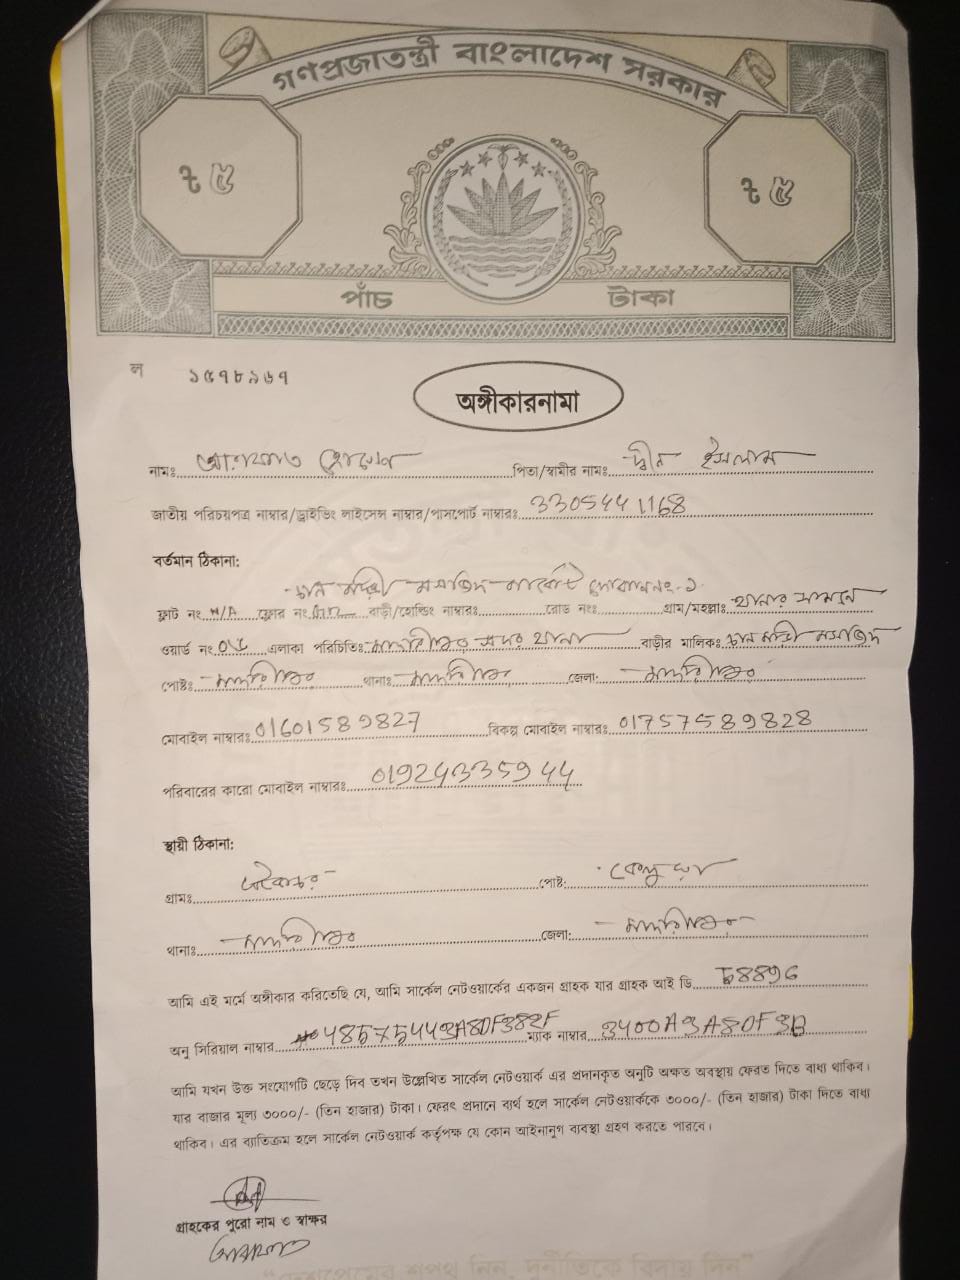 গণপ্রজাতন্ত্রী বাংলাদেশ সরকার
৳ ৫ ৳ ৫
পাঁচ টাকা
ল ১৫৭৮৯৬৭
অঙ্গীকারনামা
নামঃ হোসেন পিতা/স্বামীর নামঃ দ্বীন ইসলাম
জাতীয় পরিচয়পত্র নাম্বার/ড্রাইভিং লাইসেন্স নাম্বার/পাসপোর্ট নাম্বারঃ 3305441168
বর্তমান ঠিকানা:
মসজিদ মার্কেট দোকান নং-১
ফ্লাট নং N/A ফ্লোর নং বাড়ী/হোল্ডিং নাম্বারঃ রোড নংঃ গ্রাম/মহল্লাঃ থানার সামনে
ওয়ার্ড নং এলাকা পরিচিতিঃ মাদারীপুর সদর থানা বাড়ীর মালিকঃ মসজিদ
পোষ্টঃ মাদারীপুর থানাঃ মাদারীপুর জেলা: মাদারীপুর
মোবাইল নাম্বারঃ 01601589827 বিকল্প মোবাইল নাম্বারঃ 01757589828
পরিবারের কারো মোবাইল নাম্বারঃ 01924335944
স্থায়ী ঠিকানা:
গ্রামঃ পোষ্ট:
থানাঃ মাদারীপুর জেলা: মাদারীপুর
আমি এই মর্মে অঙ্গীকার করিতেছি যে, আমি সার্কেল নেটওয়ার্কের একজন গ্রাহক যার গ্রাহক আই ডি
অনু সিরিয়াল নাম্বার ম্যাক নাম্বার 3400A3A80F3B
আমি যখন উক্ত সংযোগটি ছেড়ে দিব তখন উল্লেখিত সার্কেল নেটওয়ার্ক এর প্রদানকৃত অনুটি অক্ষত অবস্থায় ফেরত দিতে বাধ্য থাকিব।
যার বাজার মূল্য ৩০০০/- (তিন হাজার) টাকা। ফেরৎ প্রদানে ব্যর্থ হলে সার্কেল নেটওয়ার্ককে ৩০০০/- (তিন হাজার) টাকা দিতে বাধ্য
থাকিব। এর ব্যাতিক্রম হলে সার্কেল নেটওয়ার্ক কর্তৃপক্ষ যে কোন আইনানুগ ব্যবস্থা গ্রহণ করতে পারবে।
গ্রাহকের পুরো নাম ও স্বাক্ষর